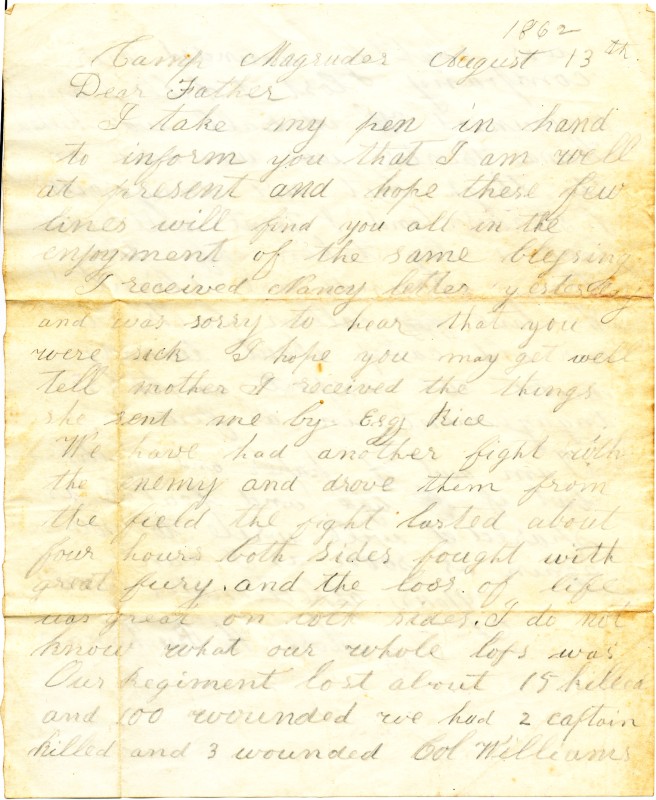 1862
Camp Magruder August 13th.
Dear Father
I take my pen in hand
to inform you that I am well
at present and hope these few
lines will find you all in the
enjoyment of the same blessing
I received Nancy letter yesterday
and was sorry to hear that you
were sick I hope you may get well
tell mother I received the things
she sent me by Esq Rice
We have had another fight with
the enemy and drove them from
the field the fight lasted about
four hours both sides fought with
great fury. and the loss. of life
was great on both sides. I do not
know what our whole loss was
Our Regiment lost about 15 killed
and 100 wounded we had 2 captain
killed and 3 wounded Col Williams